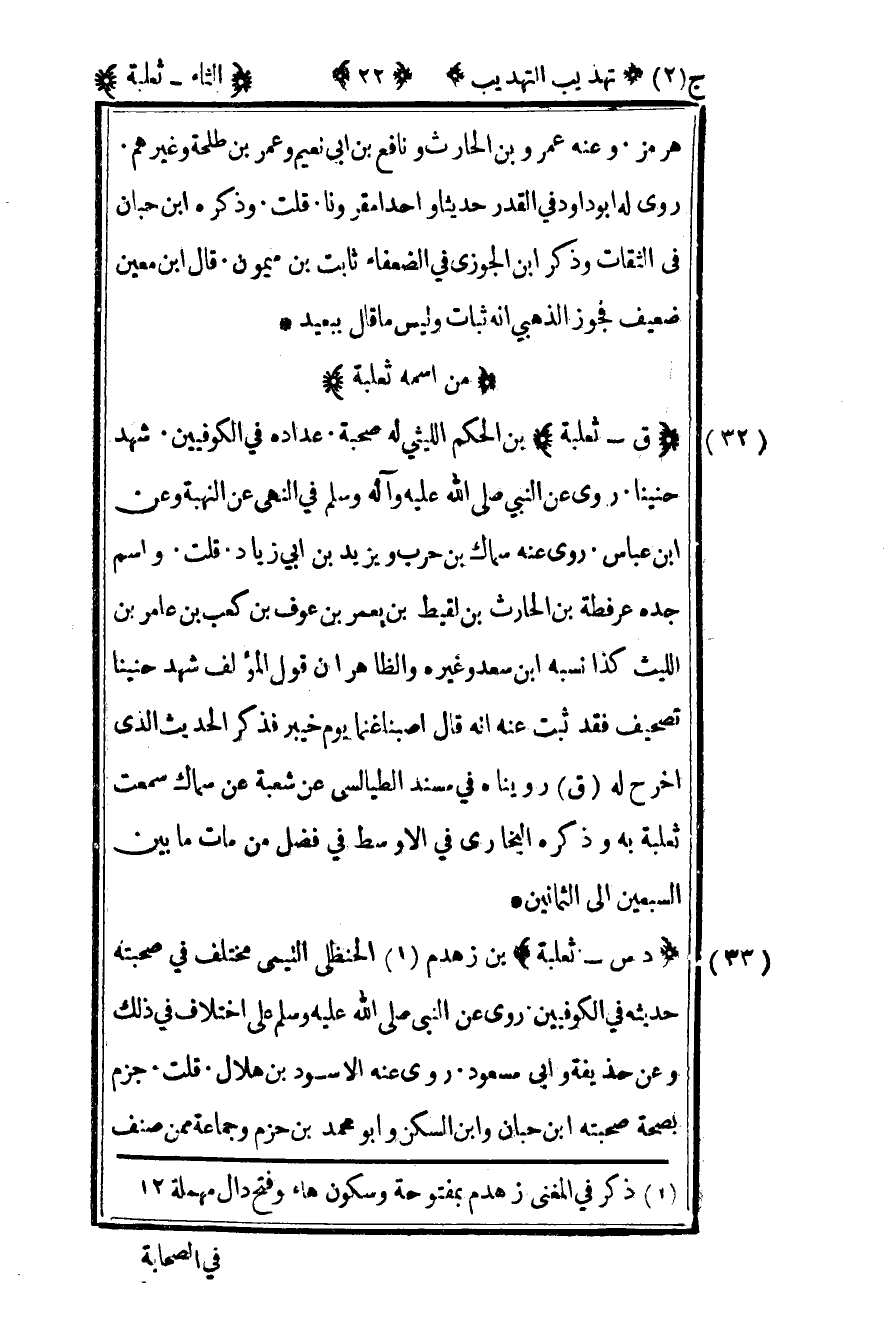 ج(٢) ﴿ تهذيب التهذيب ﴾ ﴿ ٢٢ ﴾ ﴿ الثاء ــ ثعلبة ﴾
هرمز · وعنه عمرو بن الحارث و نافع بن ابي نعيم وعمر بن طلحة وغيرهم ·
روى له ابو داود في القدر حديثا و احدا مقرونا · قلت · وذكره ابن حبان
فى الثقات وذكر ابن الجوزى في الضعفاء ثابت بن ميمون · قال ابن معين
ضعيف فجوز الذهبي انه ثبات وليس ماقال ببعيد *
﴿ من اسمه ثعلبة ﴾
(٣٢) ﴿ ق ــ ثعلبة ﴾ بن الحكم الليثي له صحبة · عداده في الكوفيين · شهد
حنينا · روى عن النبي صلى الله عليه وآله وسلم في النهى عن النهبة وعن
ابن عباس · روى عنه سماك بن حرب و يزيد بن ابي زياد · قلت · و اسم
جده عرفطة بن الحارث بن لقيط بن يعمر بن عوف بن كعب بن عامر بن
الليث كذا نسبه ابن سعد وغيره والظاهر ان قول المؤلف شهد حنينا
تصحيف فقد ثبت عنه انه قال اصبنا غنما يوم خيبر فذكر الحديث الذى
اخرح له (ق) رويناه في مسند الطيالسى عن شعبة عن سماك سمعت
ثعلبة به و ذكره البخارى في الاوسط في فضل من مات ما بين
السبعين الى الثمانين *
(٣٣) ﴿ د س ــ ثعلبة ﴾ بن زهدم (١) الحنظلى التيمى مختلف في صحبته
حديثه في الكوفيين · روى عن النبى صلى الله عليه وسلم على اختلاف في ذلك
و عن حذيفة و ابي مسعود · روى عنه الاسود بن هلال · قلت · جزم
بصحة صحبته ابن حبان وابن السكن و ابو محمد بن حزم وجماعة ممن صنف
(١) ذكر في المغنى زهدم بمفتوحة وسكون هاء وفتح دال مهملة ١٢
في الصحابة